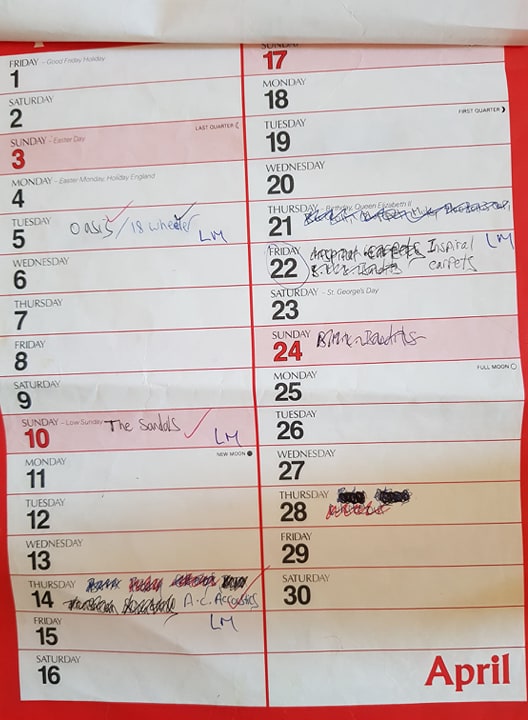 FRIDAY – Good Friday Holiday
1
SATURDAY
2
SUNDAY – Easter Day
LAST QUARTER ☾
3
MONDAY – Easter Monday, Holiday England
4
TUESDAY
5
Oasis / 18 wheeler
LM
WEDNESDAY
6
THURSDAY
7
FRIDAY
8
SATURDAY
9
SUNDAY – Low Sunday
10
The Sandals
LM
MONDAY
NEW MOON ●
11
TUESDAY
12
WEDNESDAY
13
THURSDAY
14
A.C. Acoustics
FRIDAY
15
LM
SATURDAY
16
SUNDAY
17
MONDAY
18
FIRST QUARTER ☽
TUESDAY
19
WEDNESDAY
20
THURSDAY – Birthday, Queen Elizabeth II
21
FRIDAY
22
Inspiral carpets Inspiral
LM
carpets
SATURDAY – St. George's Day
23
SUNDAY
24
MONDAY
FULL MOON ○
25
TUESDAY
26
WEDNESDAY
27
THURSDAY
28
FRIDAY
29
SATURDAY
30
April